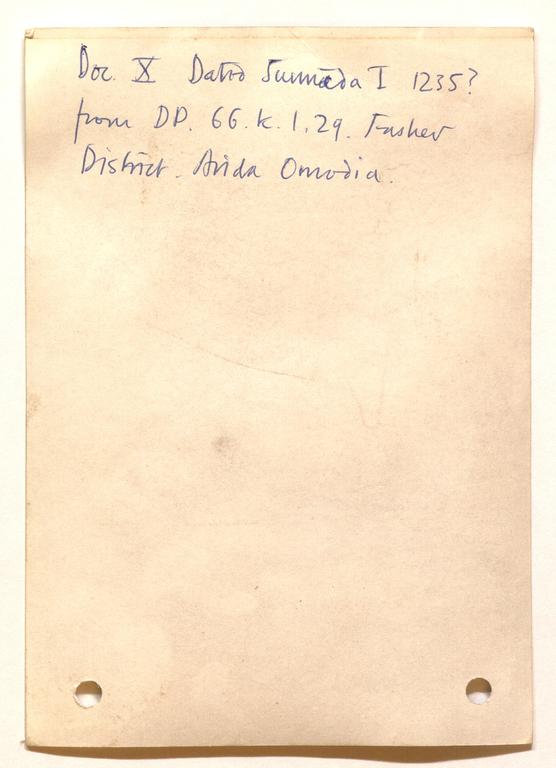 Doc. X Dated Jumāda I 1235?
from DP. 66. k. 1. 29. Fasher
District. Omodia.